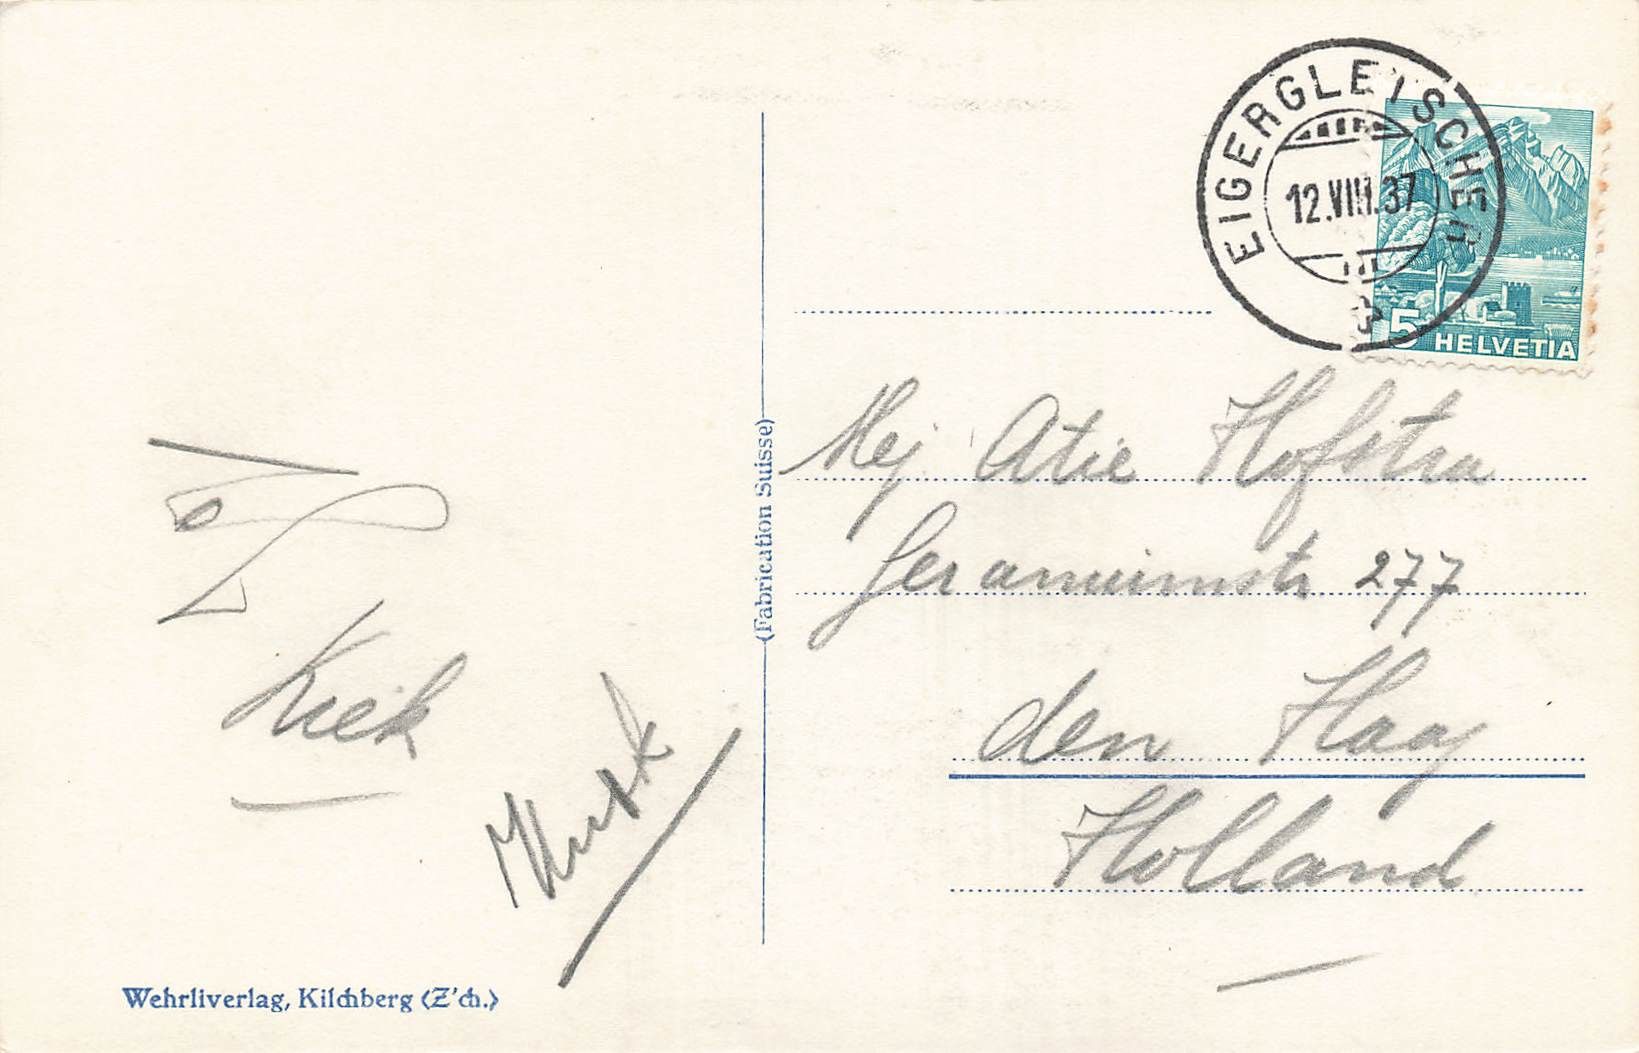 EIGERGLETSCHER
12.VIII.37
5 HELVETIA
(Fabrication Suisse)
Mej Atie Hofstra
Geraniumstr 277
den Haag
Holland
Kiek
Wehrliverlag, Kilchberg (Z'ch.)